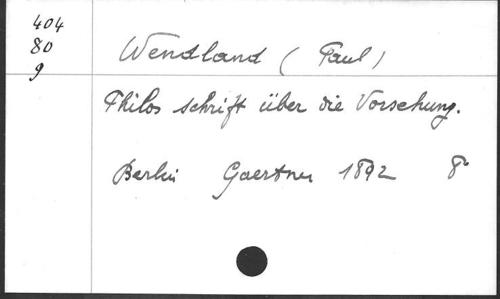 404
80
9
Wendland (Paul)
Philos schrift über die Vorsehung.
Berlin Gaertner 1892 8°